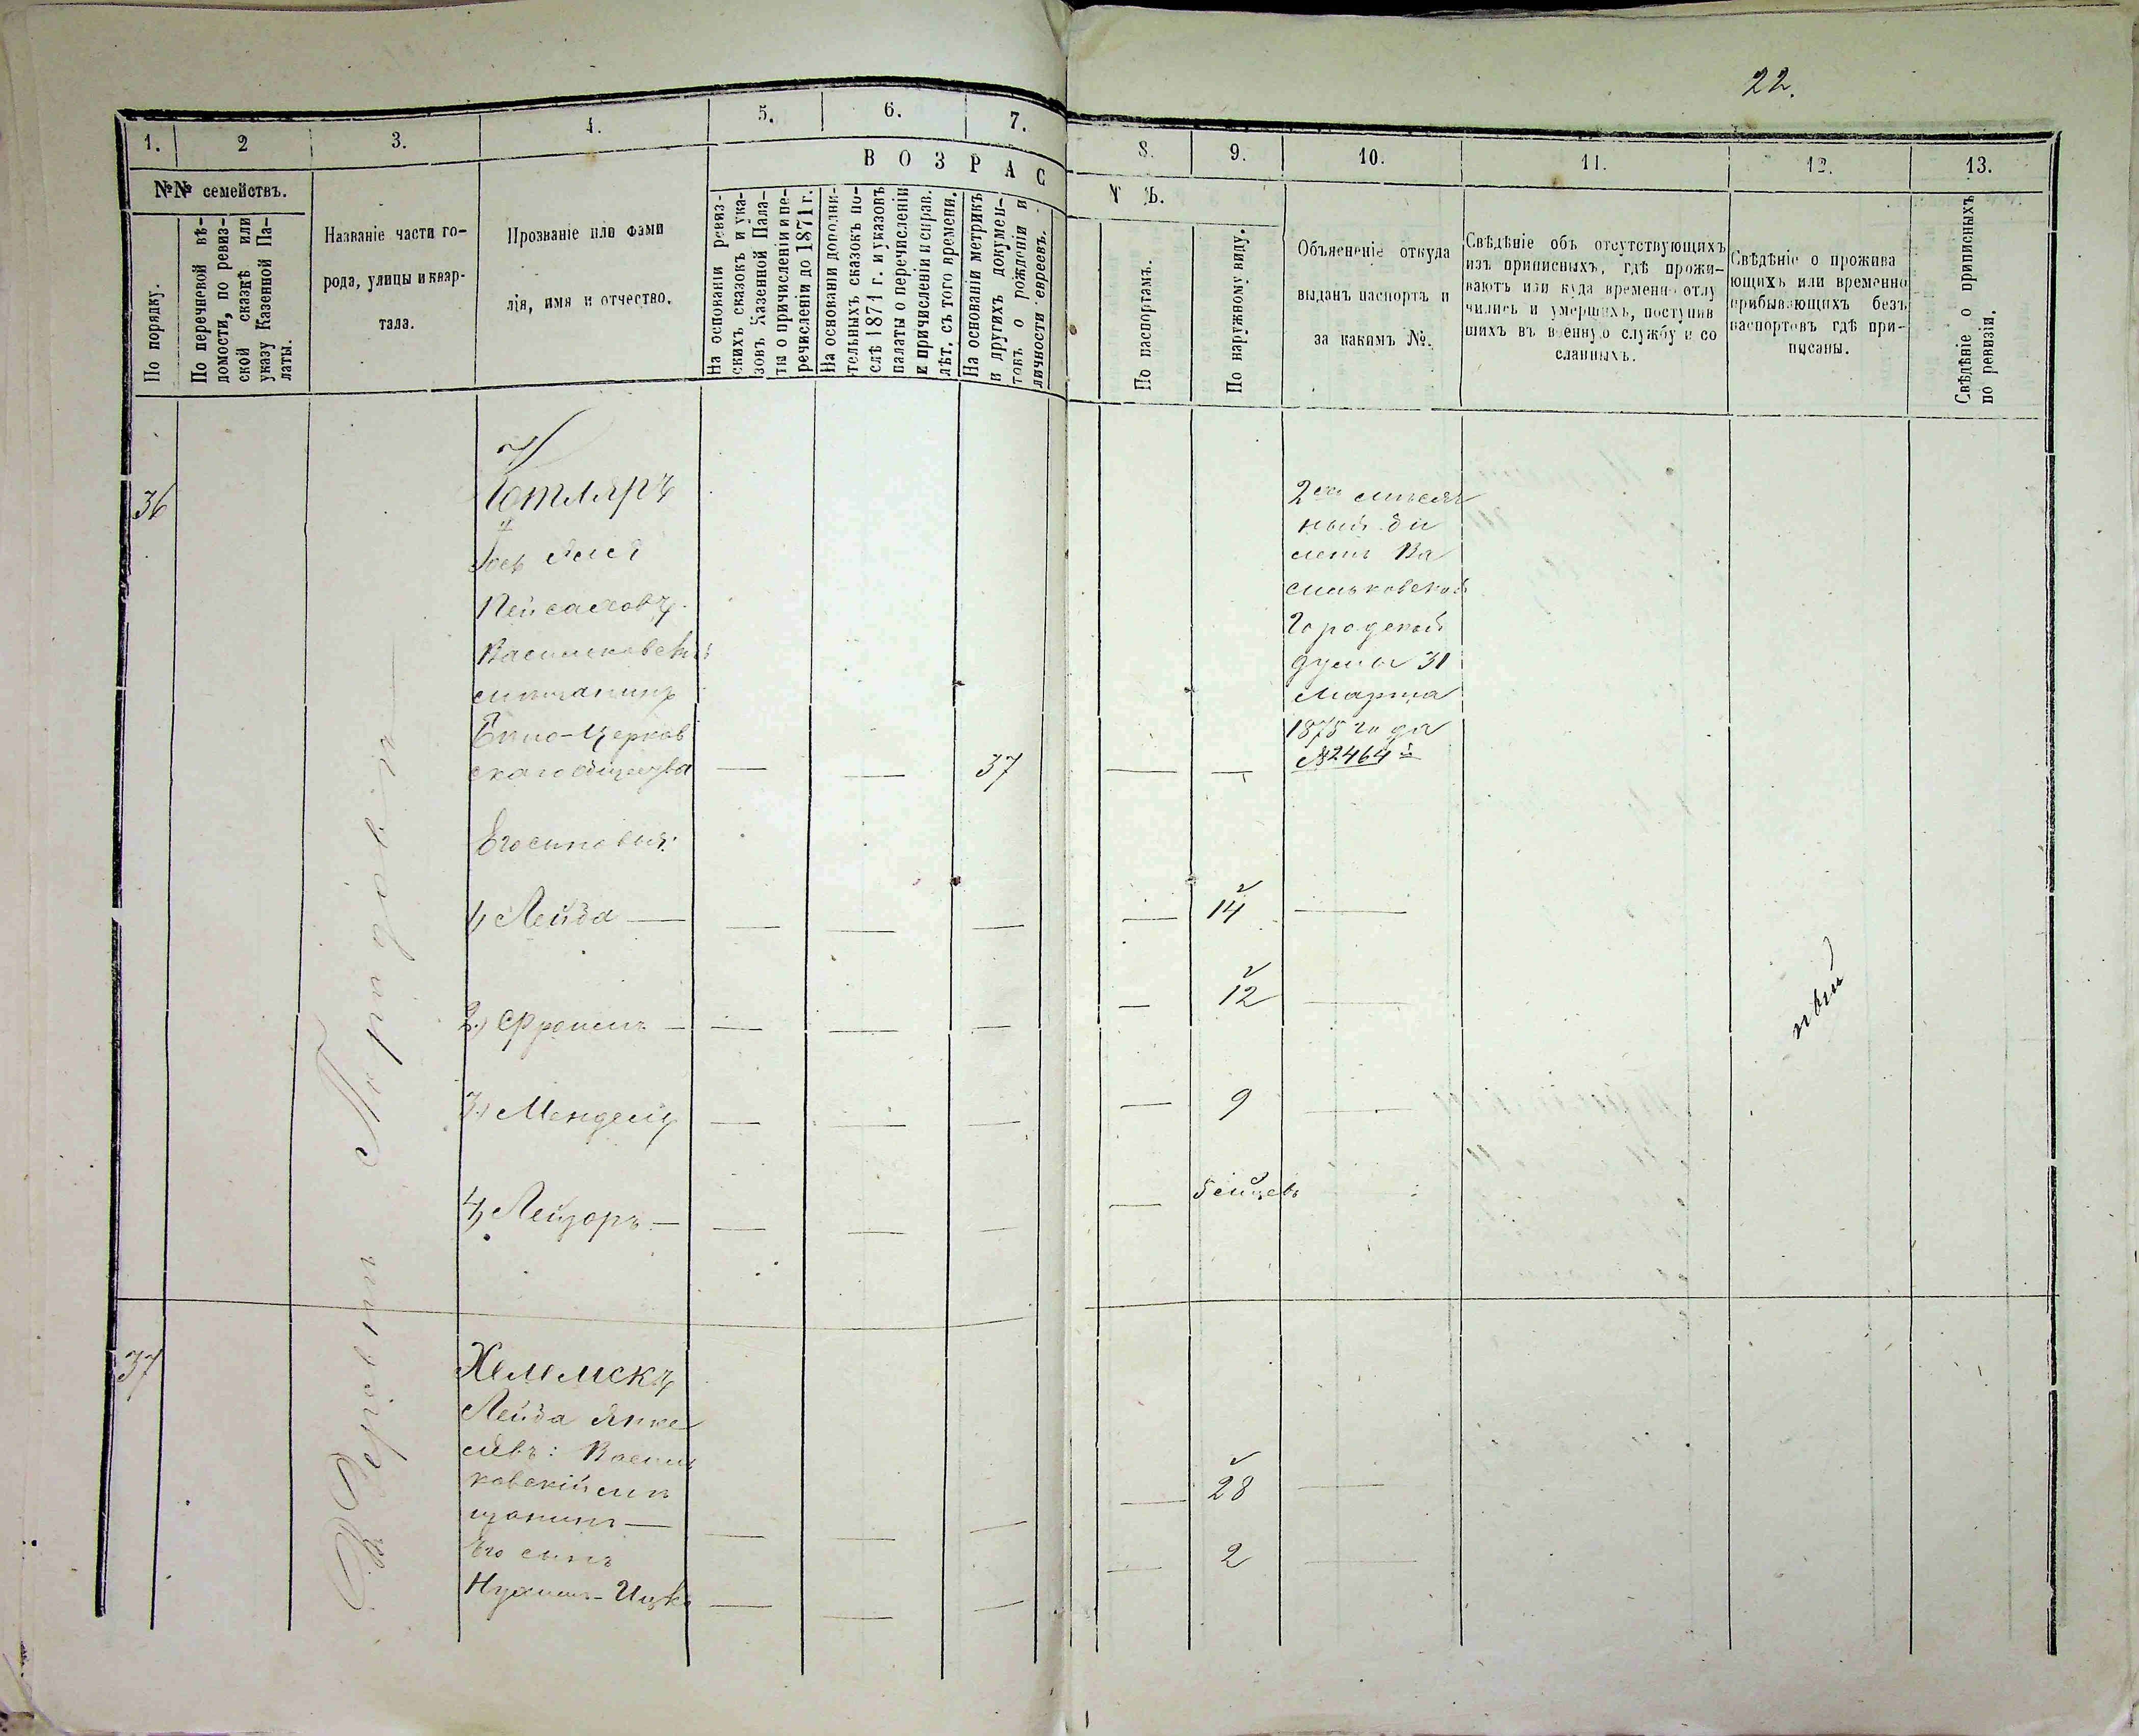 22.
1.
2
3.
4.
5.
6.
7.
8.
9.
10.
11.
12.
13.
№№ семействъ.
По порядку.
По перечневой вѣ-
домости, по ревиз-
ской сказкѣ или
указу Казенной Па-
латы.
Названіе части го-
рода, улицы и квар-
тала.
Прозваніе или фами
лія, имя и отчество.
ВОЗРАС
На основаніи ревиз-
скихъ сказокъ и ука-
зовъ Казенной Пала-
ты о причисленіи и пе-
речисленіи до 1871 г.
На основаніи дополни-
тельныхъ сказокъ по-
слѣ 1871 г. и указовъ
палаты о перечисленіи
и причисленіи и справ.
лѣт. съ того времени.
На основаніи метрикъ
и другихъ докумен-
товъ о рожденіи и
личности евреевъ.
Т Ъ.
По паспортамъ.
По наружному виду.
Объясненіе откуда
выданъ паспортъ и
за какимъ №.
Свѣдѣніе объ отсутствующихъ
изъ приписныхъ, гдѣ прожи-
ваютъ или куда временно отлу
чились и умершихъ, поступив
шихъ въ военную службу и со
сланныхъ.
Свѣдѣніе о прожива
ющихъ или временно
прибывающихъ безъ
паспортовъ гдѣ при-
писаны.
Свѣдѣніе о приписныхъ
по ревизіи.
36
Котляръ
Іось
Пейсаховъ
Васильковскій
мѣщанинъ
Бѣло-Церков
скаго общества
37
2хъ мѣсяч
ный би
летъ Ва
сильковской
Городской
думы 31
Марта
1875 года
№ 2464й
Его сыновья:
1, Лейба
14
2.) Фроимъ
12
3.) Мендель
9
4, Лейзоръ
5 мѣцевъ
37
Хелемскъ
Лейба Янке
левъ: Василь
ковскій мѣ
щанинъ
28
Его сынъ
Нухимъ-Ицко
2